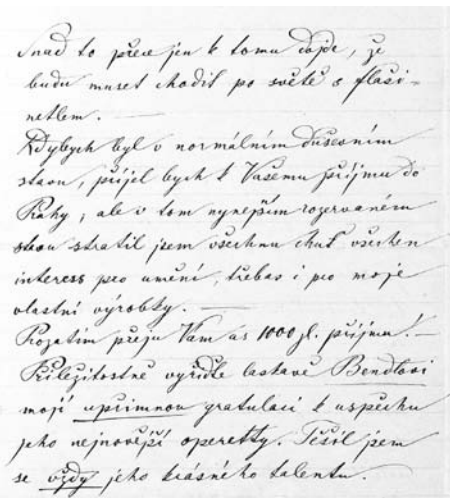 Snad to přece jen k tomu dojde, že
budu muset chodit po světě s flaši-
netlem. —
Kdybych byl v normálním duševním
stavu, přijel bych k Vašemu příjmu do
Prahy, ale v tom nynějším rozervaném
stavu stratil jsem všechnu chuť všechen
interess pro umění, třebas i pro moje
vlastní výrobky. —
Prozatím přeju Vám as 1000 zl. příjmu! —
Příležitostně vyřiďte laskavě Bendlovi
mojí upřímnou gratulaci k uspěchu
jeho nejnovější operetty. Těšil jsem
se vždy jeho krásného talentu. —